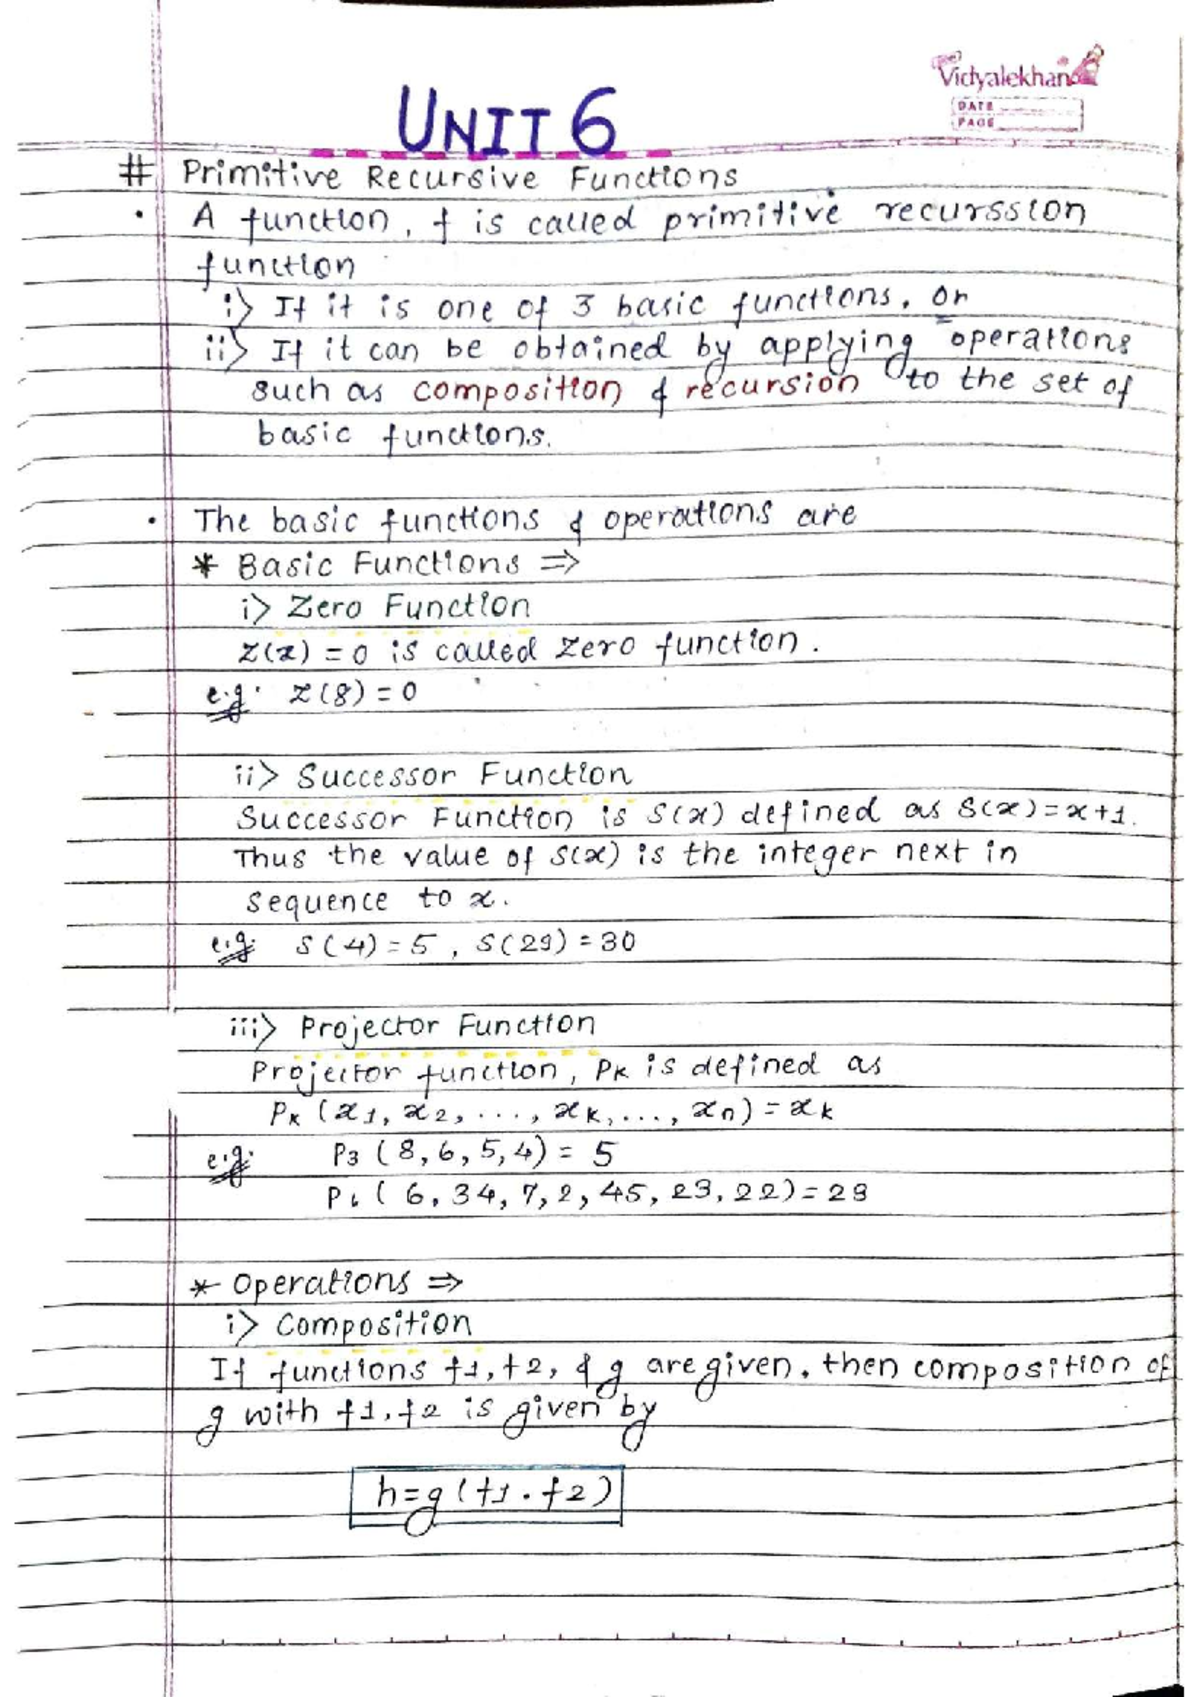 Vidyalekhan
DATE
PAGE
UNIT 6
# Primitive Recursive Functions
• A function, f is called primitive recurssion
function
i> If it is one of 3 basic functions, or
ii> If it can be obtained by applying operations
such as composition & recursion to the set of
basic functions.
• The basic functions & operations are
* Basic Functions ⇒
i> Zero Function
Z(x) = 0 is called zero function.
e.g. Z(8) = 0
ii> Successor Function
Successor Function is S(x) defined as S(x)=x+1.
Thus the value of S(x) is the integer next in
sequence to x.
e.g. S(4) = 5, S(29) = 30
iii> Projector Function
Projector function, PK is defined as
PK (x1, x2, ..., xk, ..., xn) = xk
e.g. P3 (8, 6, 5, 4) = 5
P6 (6, 34, 7, 2, 45, 23, 22) = 23
* Operations ⇒
i> Composition
If functions f1, f2, & g are given, then composition of
g with f1, f2 is given by
h=g(f1.f2)